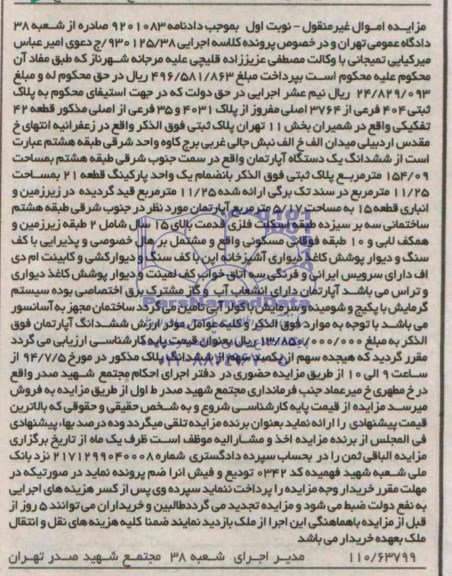 مزایـده امـوال غیرمنقول - نوبت اول بموجب دادنامه ۹۲۰۱۰۸۳ صادره از شـعبه ۳۸
دادگاه عمومی تهران و در خصوص پرونده کلاسه اجرایی ۹۳۰۱۲۵/۳۸/ج دعوی امیر عباس
میرکیایی تمیجانی با وکالت مصطفی عزیززاده قلیچی علیه مرجانه شهرناز که طبق مفاد آن
محکوم علیه محکوم است بپرداخت مبلغ ۴۹۶/۵۸۱/۸۶۳ ریال در حق محکوم له و مبلغ
۲۴/۸۲۹/۰۹۳ ریال نیم عشر اجرایی در حق دولت که در جهت استیفای محکوم به پلاک
ثبتی ۴۰۴ فرعی از ۳۷۶۴ اصلی مفروز از پلاک ۴۰۳۱ و ۳۵ فرعی از اصلی مذکور قطعه ۴۲
تفکیکی واقع در شمیران بخش ۱۱ تهران پلاک ثبتی فوق الذکر واقع در زعفرانیه انتهای خ
مقدس اردبیلی میدان الف خ الف نبش جالی غربی برج کاوه واحد شرقی طبقه هشتم عبارت
است از ششدانگ یک دستگاه آپارتمان واقع در سمت جنوب شرقی طبقه هشتم بمساحت
۱۵۴/۰۹ مترمربـع پلاک ثبتی فوق الذکر بانضمام یک واحد پارکینگ قطعه ۲۱ بمسـاحت
۱۱/۲۵ مترمربع در سند تک برگی ارائه شده ۱۱/۲۵ مترمربع قید گردیده در زیرزمین و
انباری قطعه ۱۵ به مساحت ۵/۱۷ مترمربع آپارتمان مورد نظر در جنوب شرقی طبقه هشتم
ساختمانی سه بر سیزده طبقه اسکلت فلزی قدمت بالای ۱۵ سال شامل ۲ طبقه زیرزمین و
همکف لابی و ۱۰ طبقه فوقانی مسکونی واقع و مشتمل بر هال خصوصی و پذیرایی با کف
سنگ و دیوار پوشش کاغذ دیواری آشپزخانه اپن با کف سنگ و دیوارکشی و کابینت ام دی
اف دارای سرویس ایرانی و فرنگی سه اتاق خواب کف لمینت و دیوار پوشش کاغذ دیواری
و تراس می باشد آپارتمان دارای انشعاب آب و گاز مشترک برق اختصاصی بوده سیستم
گرمایش با پکیج و شومینه و سرمایش با کولر آبی تامین می گردد ساختمان مجهز به آسانسور
می باشـد با توجه به موارد فوق الذکر و کلیه عوامل موثر ارزش ششـدانگ آپارتمان فوق
الذکر به مبلغ ۱۳/۸۵۰/۰۰۰/۰۰۰ ریال بعنوان قیمت پایه کارشناسی ارزیابی می گردد
مقرر گردید که هیجده سهم از یکصد سهم از ششدانگ پلاک مذکور در مورخ ۹۴/۷/۵ از
ساعت ۹ الی ۱۰ از طریق مزایده حضوری در دفتر اجرای احکام مجتمع شهید صدر واقع
در خ مطهری خ میرعماد جنب فرمانداری مجتمع شهید صدر ط اول از طریق مزایده به فروش
میرسـد مزایده از قیمت پایه کارشناسی شروع و به شـخص حقیقی و حقوقی که بالاترین
قیمت پیشنهادی را ارائه نماید بعنوان برنده مزایده تلقی میگردد و ده درصد بها، پیشنهادی
فی المجلس از برنده مزایده اخذ و مشـارالیه موظف است ظرف یک ماه از تاریخ برگزاری
مزایده الباقی ثمن را در بحساب سپرده دادگستری شماره ۲۱۷۱۲۹۹۰۴۰۰۰۸ نزد بانک
ملی شـعبه شهید فهمیده کد ۰۳۴۲ تودیع و فیش انرا ضم پرونده نماید در صورتیکه در
مهلت مقرر خریدار وجه مزایده را پرداخت ننماید سپرده وی پس از کسر هزینه های اجرایی
به نفع دولت ضبط می شود و مزایده تجدید می گردد طالبین و خریداران می توانند ۵ روز از
قبل از مزایده باهماهنگی این اجرا از ملک بازدید نمایند ضمنا کلیه هزینه های نقل و انتقال
ملک بعهده خریدار می باشد
۱۱۰/۶۳۷۹۹ مدیـر اجرای شـعبه ۳۸ مجتمع شـهید صدر تهـران
ParsNamadData